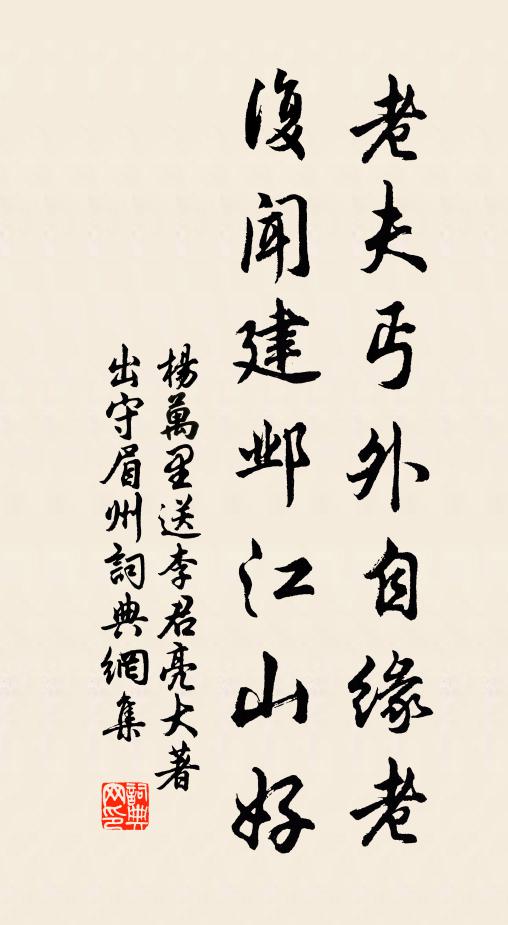 老夫丐外自緣老
復聞建邺江山好
楊萬里送李君亮大著
出守眉州詞典網集
詞典
网印